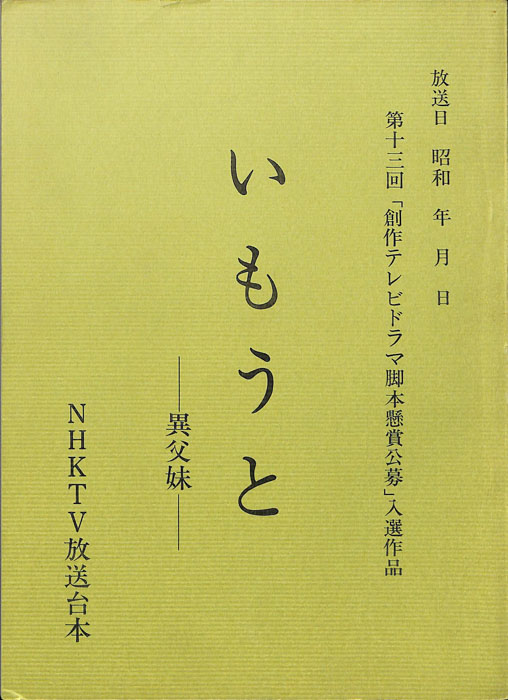 放送日 昭和 年 月 日
第十三回「創作テレビドラマ脚本懸賞公募」入選作品
いもうと
——異父妹——
NHKTV放送台本